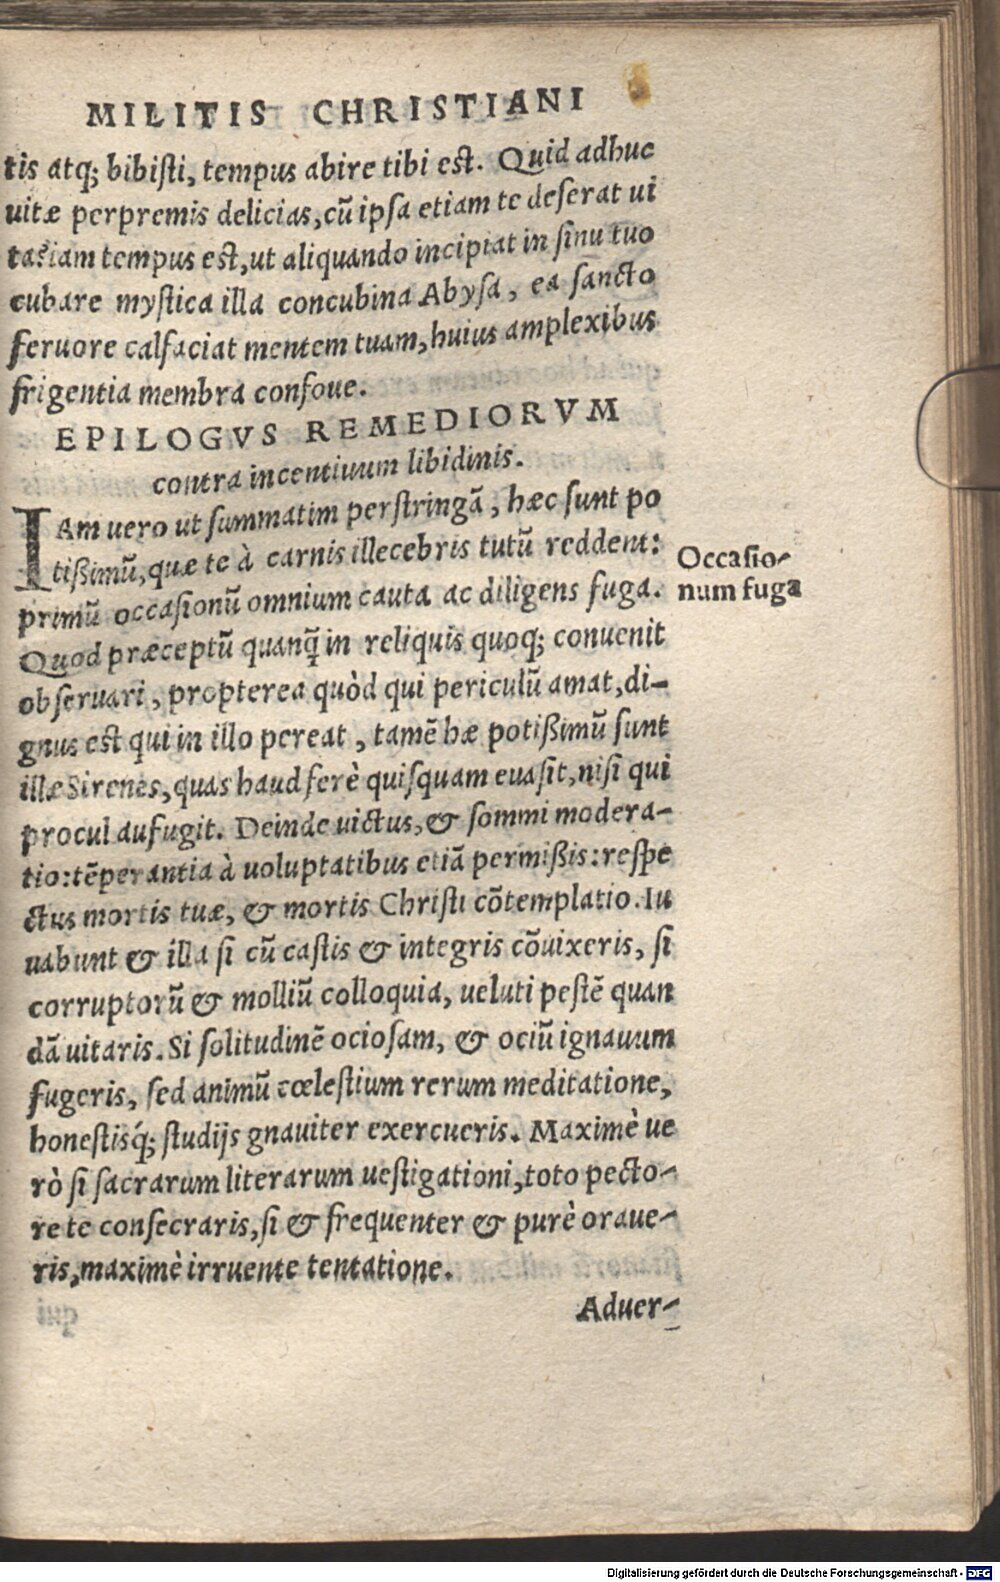 MILITIS CHRISTIANI
tis atq; bibisti, tempus abire tibi est. Quid adhuc
uitæ perpremis delicias, cũ ipsa etiam te deserat ui
ta? iam tempus est, ut aliquando incipiat in sinu tuo
cubare mystica illa concubina Abysa, ea sancto
feruore calfaciat mentem tuam, huius amplexibus
frigentia membra confoue.
EPILOGVS REMEDIORVM
contra incentiuum libidinis.
IAm uero ut summatim perstringã, hæc sunt po
tißimũ, quæ te à carnis illecebris tutũ reddent:
primũ occasionũ omnium cauta ac diligens fuga.
Occasio-
num fuga
Quod præceptũ quanq̃ in reliquis quoq; conuenit
obseruari, propterea quòd qui periculũ amat, di-
gnus est qui in illo pereat, tamẽ hæ potißimũ sunt
illæ Sirenes, quas haud ferè quisquam euasit, nisi qui
procul aufugit. Deinde uictus, & somni modera-
tio: tẽperantia à uoluptatibus etiã permißis: respe
ctus mortis tuæ, & mortis Christi cõtemplatio. Iu
uabunt & illa si cũ castis & integris cõuixeris, si
corruptorũ & molliũ colloquia, ueluti pestẽ quan
dã uitaris. Si solitudinẽ ociosam, & ociũ ignauum
fugeris, sed animũ cœlestium rerum meditatione,
honestisq́; studijs gnauiter exercueris. Maximè ue
rò si sacrarum literarum uestigationi, toto pecto-
re te consecraris, si & frequenter & purè oraue-
ris, maximè irruente tentatione.
Aduer-
Digitalisierung gefördert durch die Deutsche Forschungsgemeinschaft - DFG